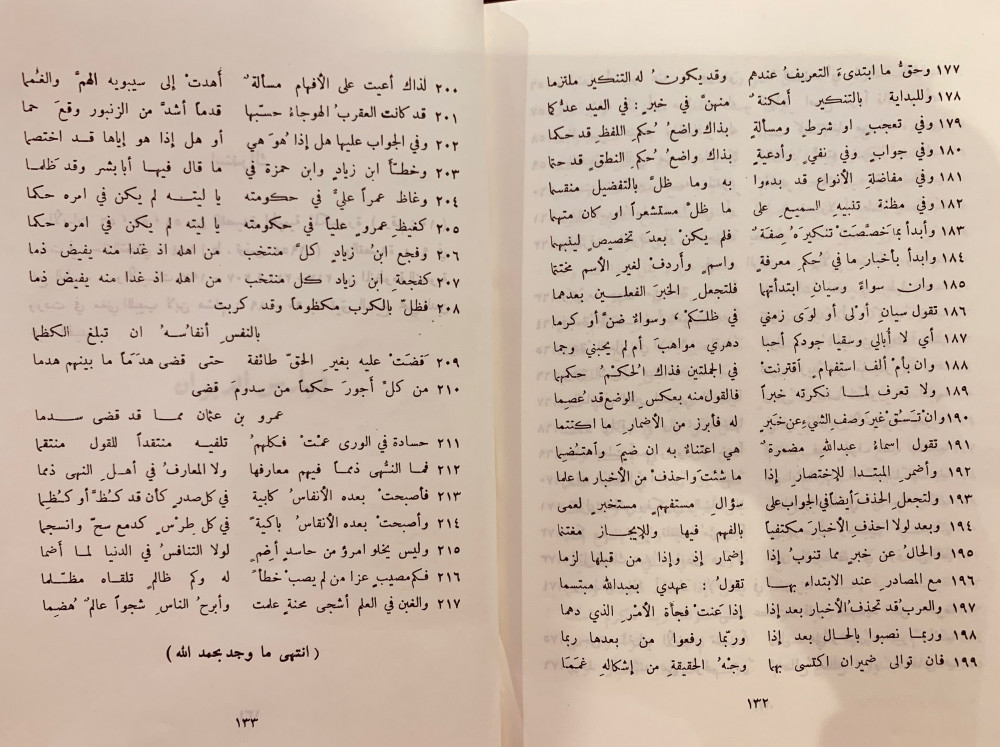 ١٧٧ وحقُّ ما ابتدىءَ التعريفُ عندهم وقد يكونُ له التنكير ملتزما
١٧٨ وللبداية بالتنكير أمكنةٌ منهنَّ في خبرٍ : في العيد عدُّكما
١٧٩ وفي تعجبٍ او شرطٍ ومسألةٍ بذاك واضعُ حُكمِ اللفظِ قد حكما
١٨٠ وفي جوابٍ وفي نفيٍ وأدعيةٍ بذاك واضعُ حُكمِ النطقِ قد حتما
١٨١ وفي مفاضلةِ الأنواع قد بدءوا به وما ظلَّ بالتفضيل منقسما
١٨٢ وفي مظنة تنبيهِ السميعِ على ما ظلَّ مستشعراً او كان متهما
١٨٣ وأبدأ بما خصّصَتْ تنكيرَهُ صفةٌ فلم يكن بعدَ تخصيصٍ لينبهما
١٨٤ وابدا بأخبار ما في حُكمِ معرفةٍ واسمٍ وأردف لغير الأسم مختتما
١٨٥ وان سواءً وسيان ابتدأتهما فلتجعلِ الخبرَ الفعلين بعدهما
١٨٦ تقول سيانِ أوْلى أو لوَى زمني في ظلّكمْ ، وسواءٌ ضنَّ أو كرما
١٨٧ أي لا أبالي وسقيا جودكم أحبا دهري مواهبَ أم لم يحبني وجما
١٨٨ وان بأمْ ألف استفهامٍ أقترنتْ في الجملتين فذاك الُحكمُ حكمهما
١٨٩ ولا تعرف لما نكرته خبراً فالقول منه بعكسِ الوضعِ قد عُصِما
١٩٠ وانْ تَسَقْ غيرَ وصفِ الشيءِ عن خبَرٍ له فأبرز من الأضمارِ ما اكتتما
١٩١ تقول اسماءُ عبدالله مضمرةٌ هي اعتناءٌ به ان ضيمَ وأهتُضِما
١٩٢ وأضمرِ المبتدا للإختصار إذا ما شئتَ واحذفْ من الأخبار ما علما
١٩٣ ولتجعلِ الحذفَ أيضاً في الجواب على سؤالِ مستفهمٍ مستخبرٍ لعمى
١٩٤ وبعد لولا احذفِ الأخبارَ مكتفياً بالفهم فيها وللإيجاز مغتنما
١٩٥ والحالُ عن خبرٍ مما تنوبُ إذا إضمار إذ وإذا من قبلها لزما
١٩٦ مع المصادرِ عند الابتداء بها تقولُ : عهدي بعبدالله مبتسما
١٩٧ والعربُ قد تحذفُ الأخبار بعد إذا إذا عَنتْ فجأةَ الأمْرِ الذي دهما
١٩٨ وربما نصبوا بالحال بعد إذا وربّما رفعوا من بعدها ربما
١٩٩ فان توالى ضميران اكتسى بها وجهُ الحقيقةِ من إشكالهِ غمَمَا
١٣٢
٢٠٠ لذاك أعيت على الأفهام مسألةٌ أهدتْ إلى سيبويه الهمَّ والغُمما
٢٠١ قد كانت العقربُ الهوجاءُ حسبُها قدماً أشدَّ من الزنبور وقعَ حما
٢٠٢ وفي الجواب عليها هل إذا هُوَ هي أو هل إذا هو إياها قد اختصما
٢٠٣ وخطّأ ابن زيادٍ وابن حمزة في ما قال فيها أبا بشر وقد ظلما
٢٠٤ وغاظ عمراً عليٌّ في حكومته يا ليته لم يكن في امره حكما
٢٠٥ كغيظِ عمروٍ علياً في حكومته يا ليته لم يكن في امره حكما
٢٠٦ وفجع ابنُ زيادٍ كلَّ منتخب من اهله اذ غدا منه يفيض ذما
٢٠٧ كفجعةِ ابن زيادٍ كل منتخب من اهله اذ غدا منه يفيض ذما
٢٠٨ فظلّ بالكرب مكظوماً وقد كربت
بالنفسِ أنفاسُهُ ان تبلغ الكظما
٢٠٩ قَضَتْ عليه بغيرِ الحقّ طائفة حتى قضى هدَمَاً ما بينهم هدما
٢١٠ من كلّ أجورَ حكماً من سدومَ قضى
عمرو بن عثمان مما قد قضى سدما
٢١١ حسادة في الورى عمتْ فكلهمُ تلفيه منتقداً للقول منتقما
٢١٢ فما النُّهى ذمماً فيهم معارفها ولا المعارفُ في أهلِ النهى ذمما
٢١٣ فأصبحتْ بعده الأنفاسُ كابية في كل صدرٍ كأن قد كُظَّ أو كُظِما
٢١٤ وأصبحت بعده الأنقاسُ باكيةً في كل طرْسٍ كدمع سحّ وانسجما
٢١٥ وليس يخلو امرؤ من حاسدٍ أضِمٍ لولا التنافسُ في الدنيا لما أضما
٢١٦ فكم مصيبٍ عزا من لم يصبْ خطأً له وكم ظالمٍ تلقاه مظّلما
٢١٧ والغبن في العلم أشجى محنةٍ علمت وأبرحُ الناسِ شجواً عالمٌ هُضِما
( انتهى ما وجد بحمد الله )
١٣٣